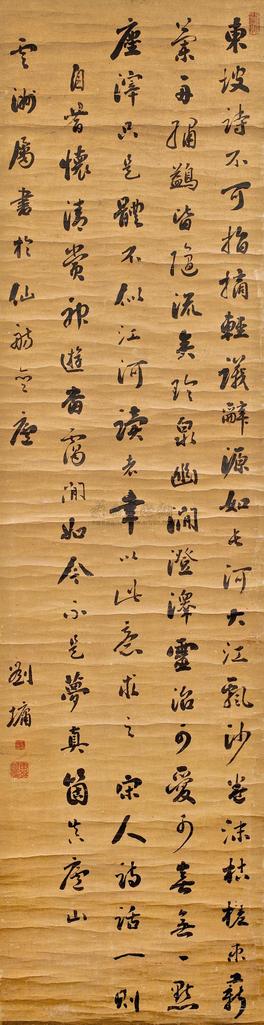 東坡詩不可指摘輕議辭源如長河大江飄沙卷沫枯槎束薪
蘭舟繡鷁皆隨流矣珍泉幽澗澄澤靈沼可愛可喜無一點
塵滓只是體不似江河讀者幸以此意求之 宋人詩話一則
自昔懷清賞神遊杳靄間如今不是夢真箇是廬山
雲洲屬書於仙舫

劉墉